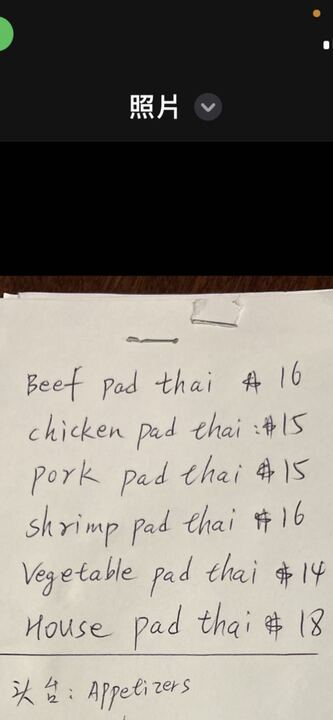 照片
Beef pad thai $ 16
chicken pad thai :$15
pork pad thai $15
shrimp pad thai $16
Vegetable pad thai $14
House pad thai $ 18
头台: Appetizers